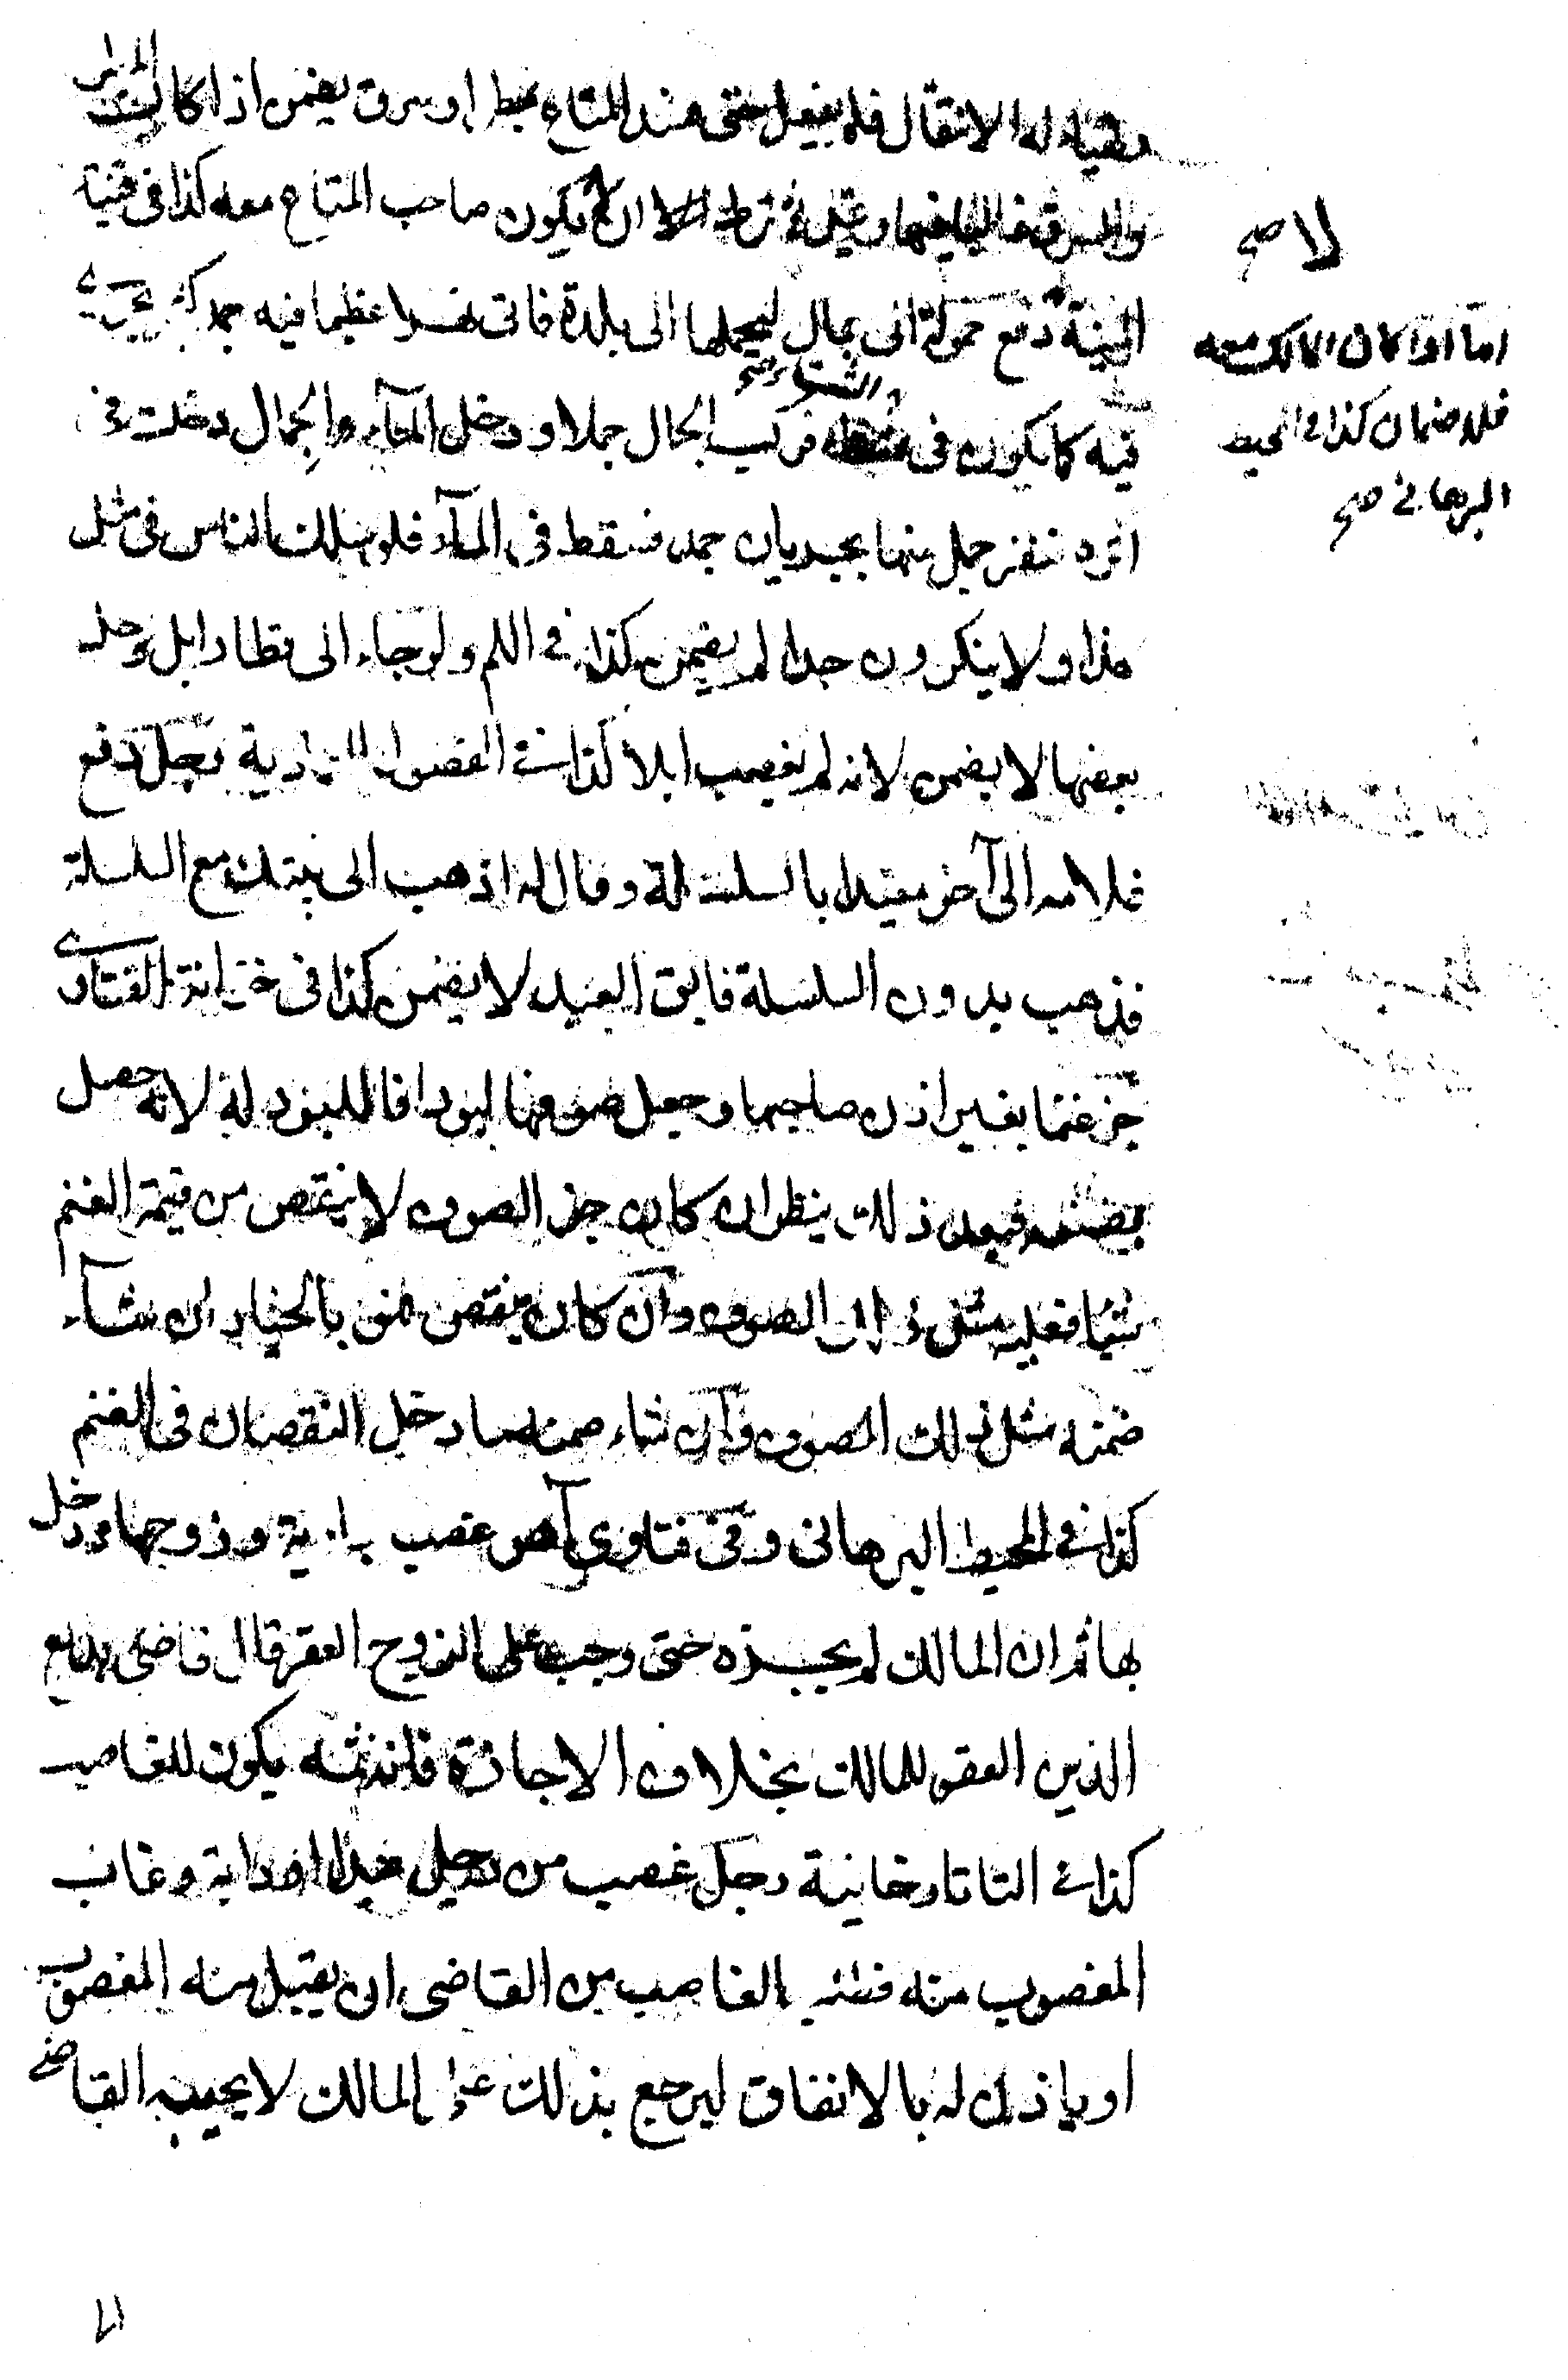 يتهيأ له الانتقال فلم يفعل حتى فسد المتاع بمطر او سرق يضمن اذا كان المطر
والسرقة غالبا فيها وقيل شرط ان لا يكون صاحب المتاع معه كذا في قنية
المنية دفع حمولة الى جمال ليحملها الى بلدة فاتى نهرا عظيما فيه جمد كثير يجرى
فيه كما يكون في الشتاء فركب الجمال جملا ودخل المآء والجمال دخلت في
اثره فنفر جمل منها بجريان جمد فسقط في المآء فلو يسلك الناس في مثل
هذا ولا ينكرون جدا لم يضمن كذا في ولو جاء الى قطار ابل وحل
بعضها لا يضمن لانه لم يغصب ابلا كذا في الفصول العمادية رجل دفع
غلامه الى آخر مقيدا بالسلسلة وقال له اذهب الى بيتك مع السلسلة
فذهب بدون السلسلة فابق العبد لا يضمن كذا في خزانة الفتاوى
جز غنما بغير اذن صاحبها وجعل صوفها لبودا فاللبود له لانه حصل
بصنعه فبعد ذلك ينظر ان كان جز الصوف لا ينقص من قيمة الغنم
شيئا فعليه مثل ذلك الصوف وان كان ينقص فهو بالخيار ان شآء
ضمنه مثل ذلك الصوف وان شاء ضمنه ما دخل النقصان في الغنم
كذا في المحيط البرهاني وفي فتاوى آهو غصب جارية وزوجها ودخل
بها ثم ان المالك لم يجزه حتى وجب على الزوج العقر قال قاضى بديع
الدين العقر للمالك بخلاف الاجارة فانه ثمه يكون للغاصب
كذا في التاتارخانية رجل غصب من رجل عبدا او دابة وغاب
المغصوب منه فطلب الغاصب من القاضى ان يقبل منه المغصوب
او ياذن له بالانفاق ليرجع بذلك على المالك لا يجيبه القاضى
لا صح
اما اذا كان المالك معه
فلا ضمان كذا في المحيط
البرهاني صح